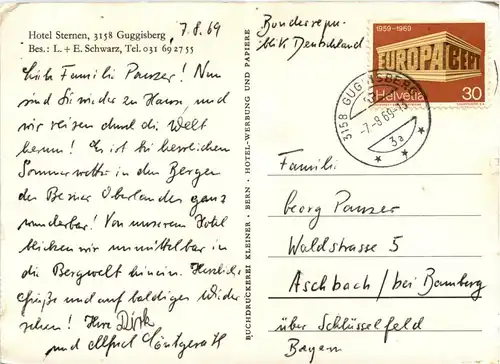 Hotel Sternen, 3158 Guggisberg
Bes.: L. + E. Schwarz, Tel. 031 69 27 55
7.8.69
Liebe Familie Panzer! Nun
sind Sie wieder zu Hause, und
wir reisen durch die Welt
herum! Es ist bei herrlichem
Sommerwetter in den Bergen
des Berner Oberlandes ganz
wunderbar! Von unserem Hotel
blicken wir unmittelbar in
die Bergwelt hinein. Herzliche
Grüße und auf baldiges Wieder
sehen! Ihre Dirk
und Alfred
BUCHDRUCKEREI KLEINER · BERN · HOTEL-WERBUNG UND PAPIERE
Bundesrepu-
blik Deutschland
1959-1969
EUROPA CEPT
Helvetia 30
3158 GUGGISBERG
-7.-8.69
3a
Familie
Georg Panzer
Waldstrasse 5
Aschbach/bei Bamberg
über Schlüsselfeld
Bayern